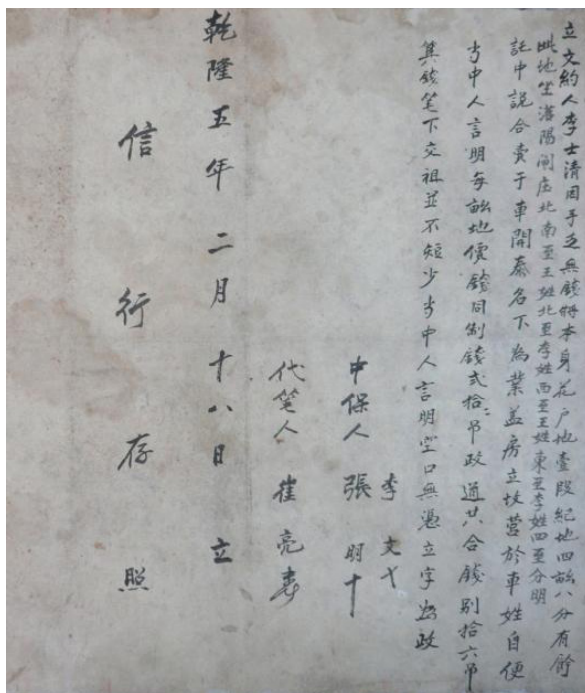 立文約人李士清因手乏無錢將本身花户地壹段紀地四畝八分有餘
此地坐瀋陽閘庄北南至王姓北至李姓西至王姓東至李姓四至分明
託中説合賣于車開泰名下為業蓋房立坟營於車姓自便
当中人言明每畝地價錢同制錢弍拾二吊政通共合錢别拾六吊
其錢筆下交祖並不短少当中人言明空口無憑立字為政
李文
中保人 張明十
代笔人 崔亮春
乾隆五年二月十八日 立
信行存照